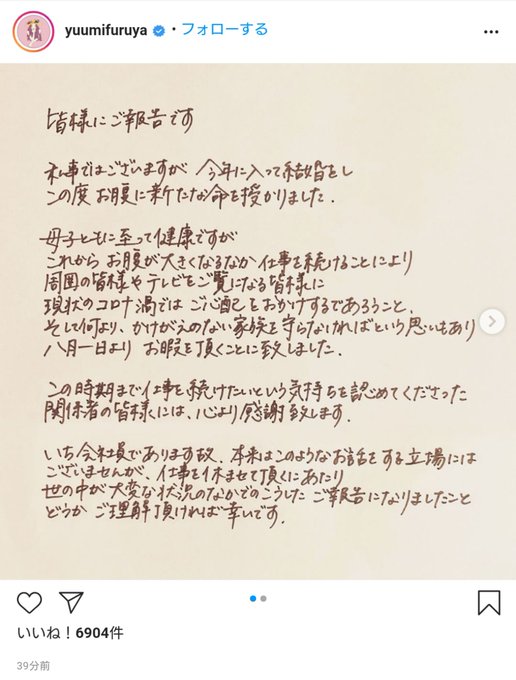 yuumifuruya ・フォローする
皆様にご報告です
私事ではございますが 今年に入って結婚をし
この度 お腹に新たな命を授かりました.
母子ともに至って健康ですが
これから お腹が大きくなるなか 仕事を続けることにより
周囲の皆様や テレビをご覧になる皆様に
現状のコロナ渦では ご心配をおかけするであろうこと、
そして何より、かけがえのない 家族を守らなければという思いもあり
八月一日より お暇を頂くことに致しました.
この時期まで仕事を続けたいという気持ちを認めてくださった
関係者の皆様には、心より感謝致します.
いち会社員であります故、本来はこのようなお話をする立場には
ございませんが、仕事を休ませて頂くにあたり
世の中が大変な状況のなかでのこうした ご報告になりましたこと
どうか ご理解頂ければ幸いです.
いいね！6904件
39分前